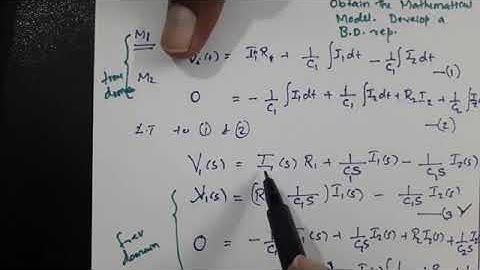 Obtain the Mathematical
Model. Develop a
B.D. rep.
M1
M2
time domain
V₁(t) = I₁R₁ + 1/C₁ ∫I₁dt − 1/C₁ ∫I₂dt —(1)
0 = −1/C₁ ∫I₁dt + 1/C₁ ∫I₂dt + R₂I₂ + 1/C₂ ∫I
—(2)
L.T to (1) & (2)
V₁(s) = I₁(s) R₁ + 1/C₁S I₁(s) − 1/C₁S I₂(s)
V₁(s) = (R 1/C₁S) I₁(s) − 1/C₁S I₂(s)
—(3)
domain
0 = −1/C₁S I₁(s) + 1/C₁S I₂(s) + R₂I₂(s) + 1/C₂S